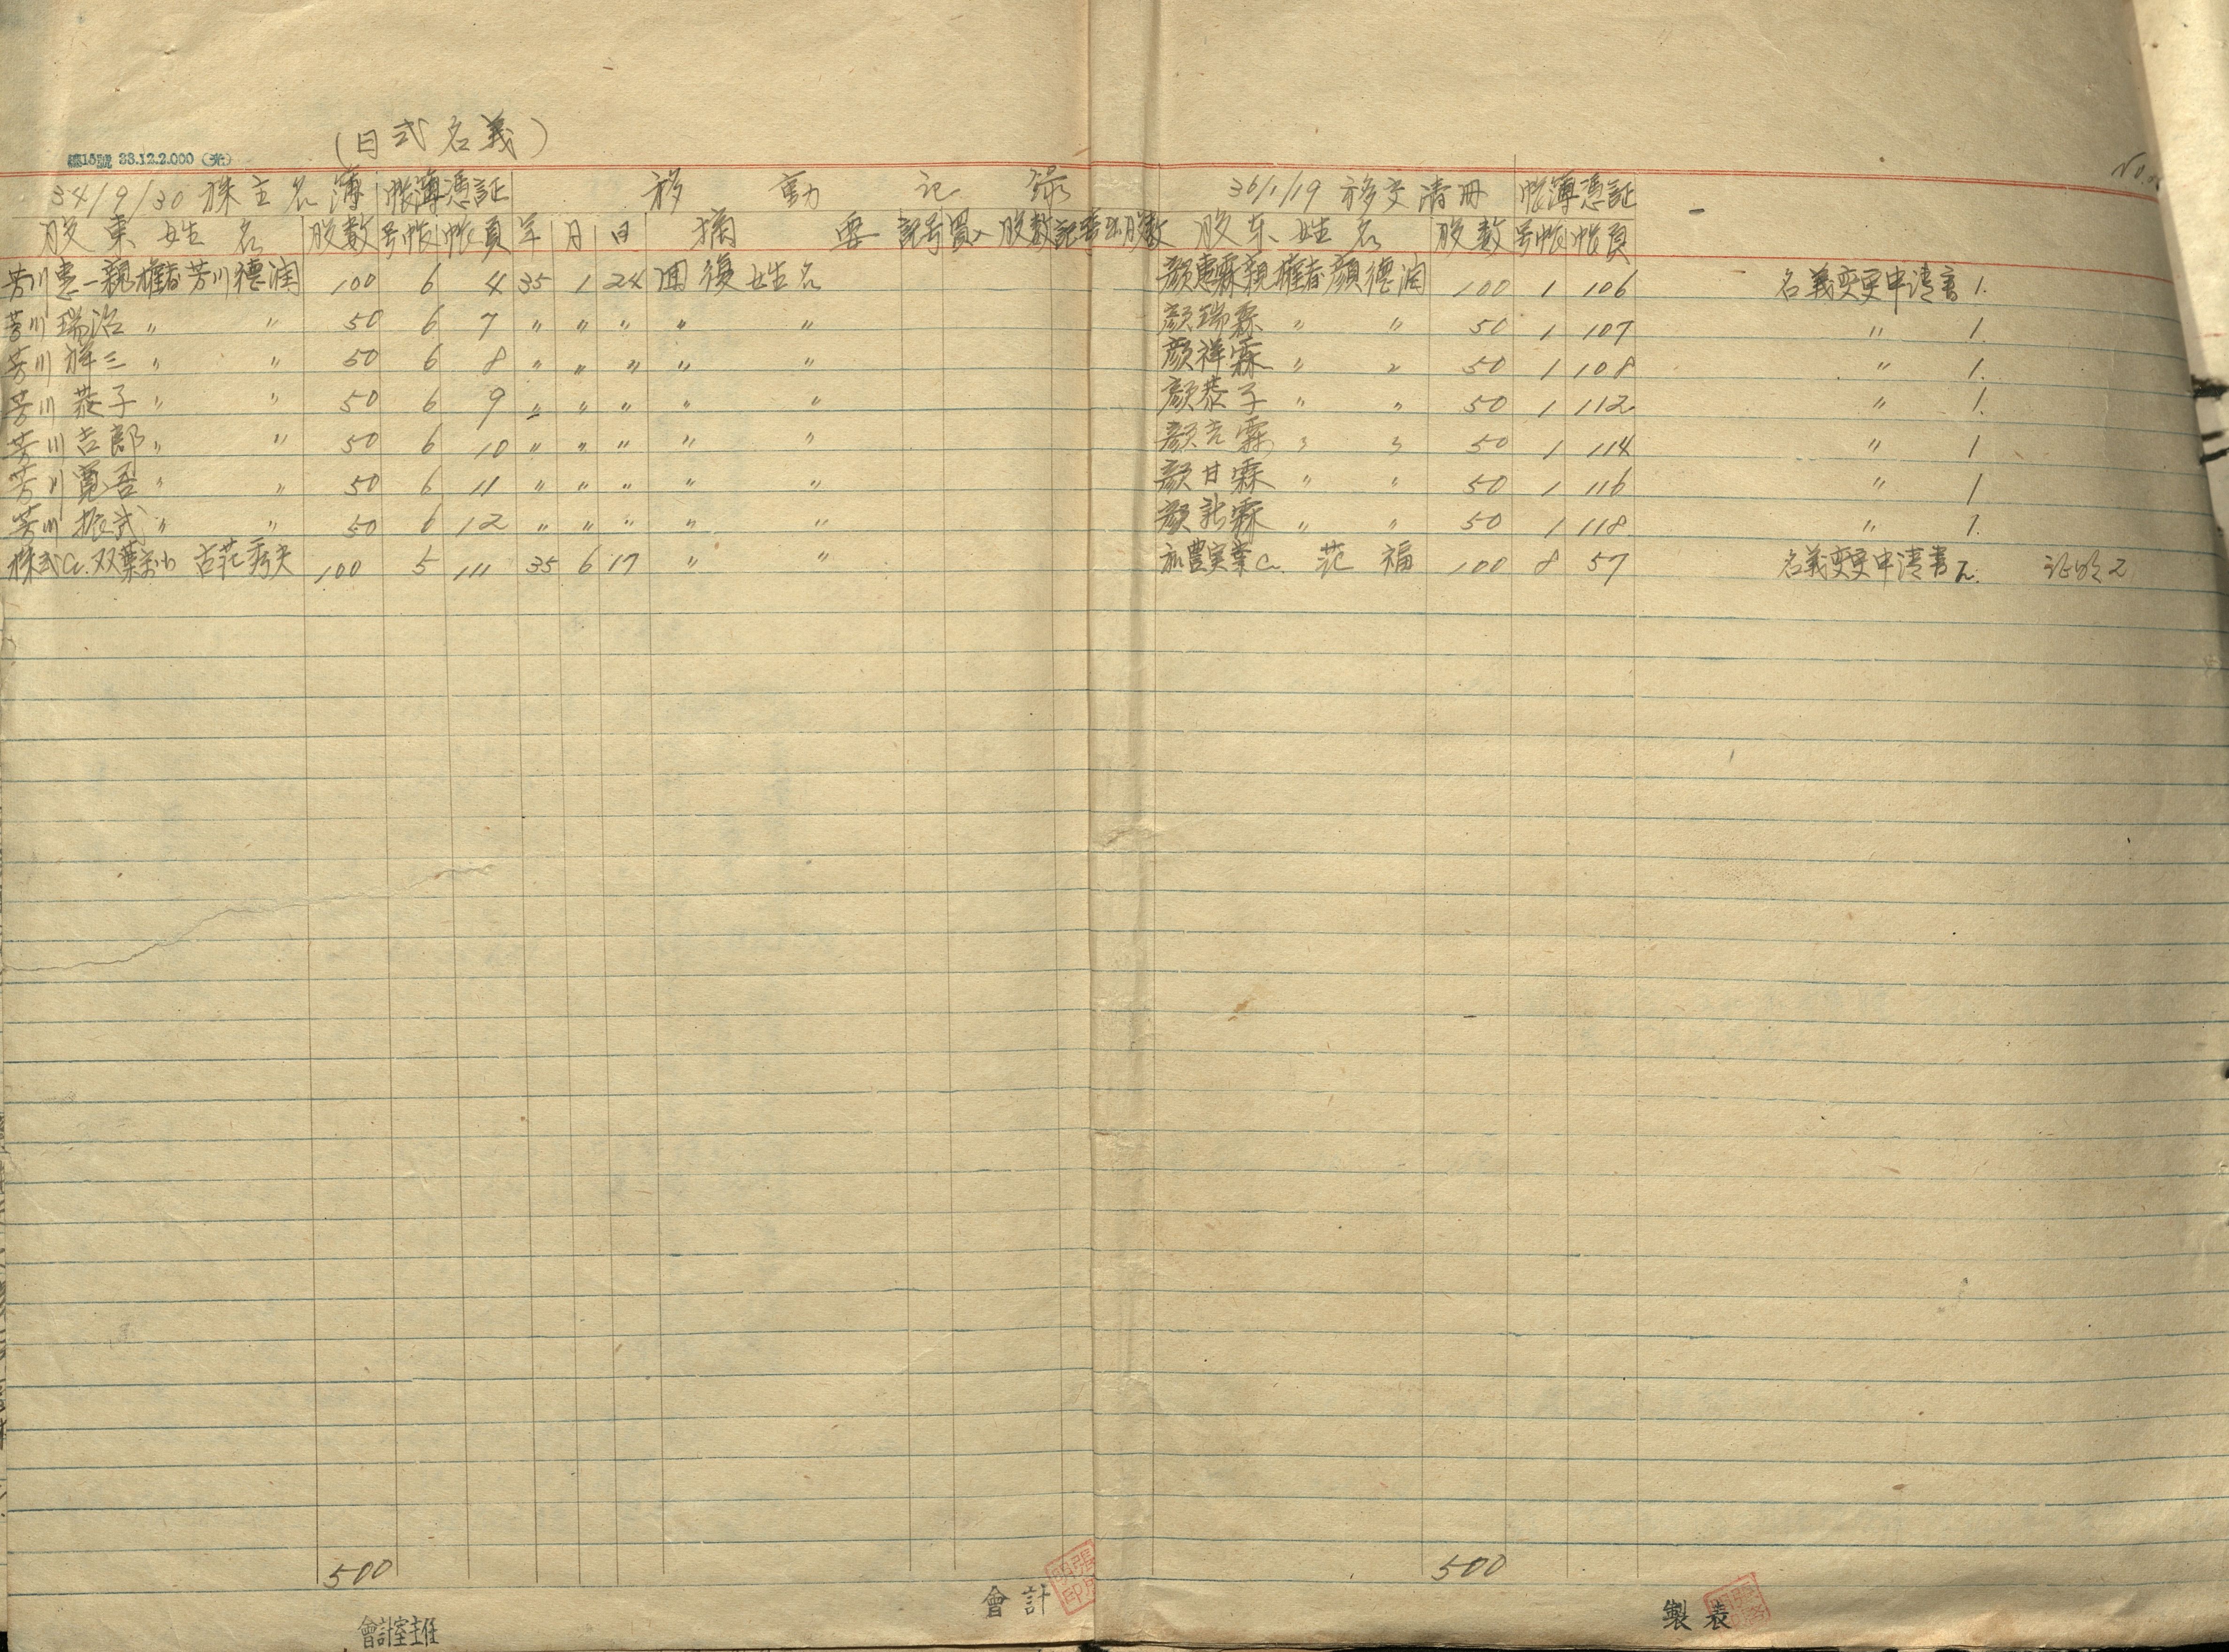 (日式名義)
第15號 33.12.2.000 (光)
34/9/30 株主名簿 帳簿憑証 移動記錄 36/1/19 移交清冊 帳簿憑証
股東姓名 股数 号帳 帳頁 年 月 日 摘要 記号 買入股数 記号 股数 股东姓名 股数 号帳 帳頁
芳川惠一親権者芳川德润 100 6 4 35 1 24 回復姓名 顔惠霖親権者顔德润 100 1 106 名義変更申请書 1.
芳川瑞治 〃 〃 50 6 7 〃 〃 〃 〃 〃 顔瑞霖 〃 〃 50 1 107 〃 1.
芳川祥三 〃 〃 50 6 8 〃 〃 〃 〃 〃 顔祥霖 〃 〃 50 1 108 〃 1.
芳川恭子 〃 〃 50 6 9 〃 〃 〃 〃 〃 顔恭子 〃 〃 50 1 112 〃 1.
芳川吉郎 〃 〃 50 6 10 〃 〃 〃 〃 〃 顔 霖 〃 〃 50 1 114 〃 1
芳川寛吾 〃 〃 50 6 11 〃 〃 〃 〃 〃 顔甘霖 〃 〃 50 1 116 〃 1
芳川振武 〃 〃 50 6 12 〃 〃 〃 〃 〃 顔 霖 〃 〃 50 1 118 〃 1.
株式C. 双葉 古范秀夫 100 5 111 35 6 17 〃 〃 豊実業C. 范福 100 8 57 名義変更申请書 2. 証明 2
500 500
會計室主任 會計 製表